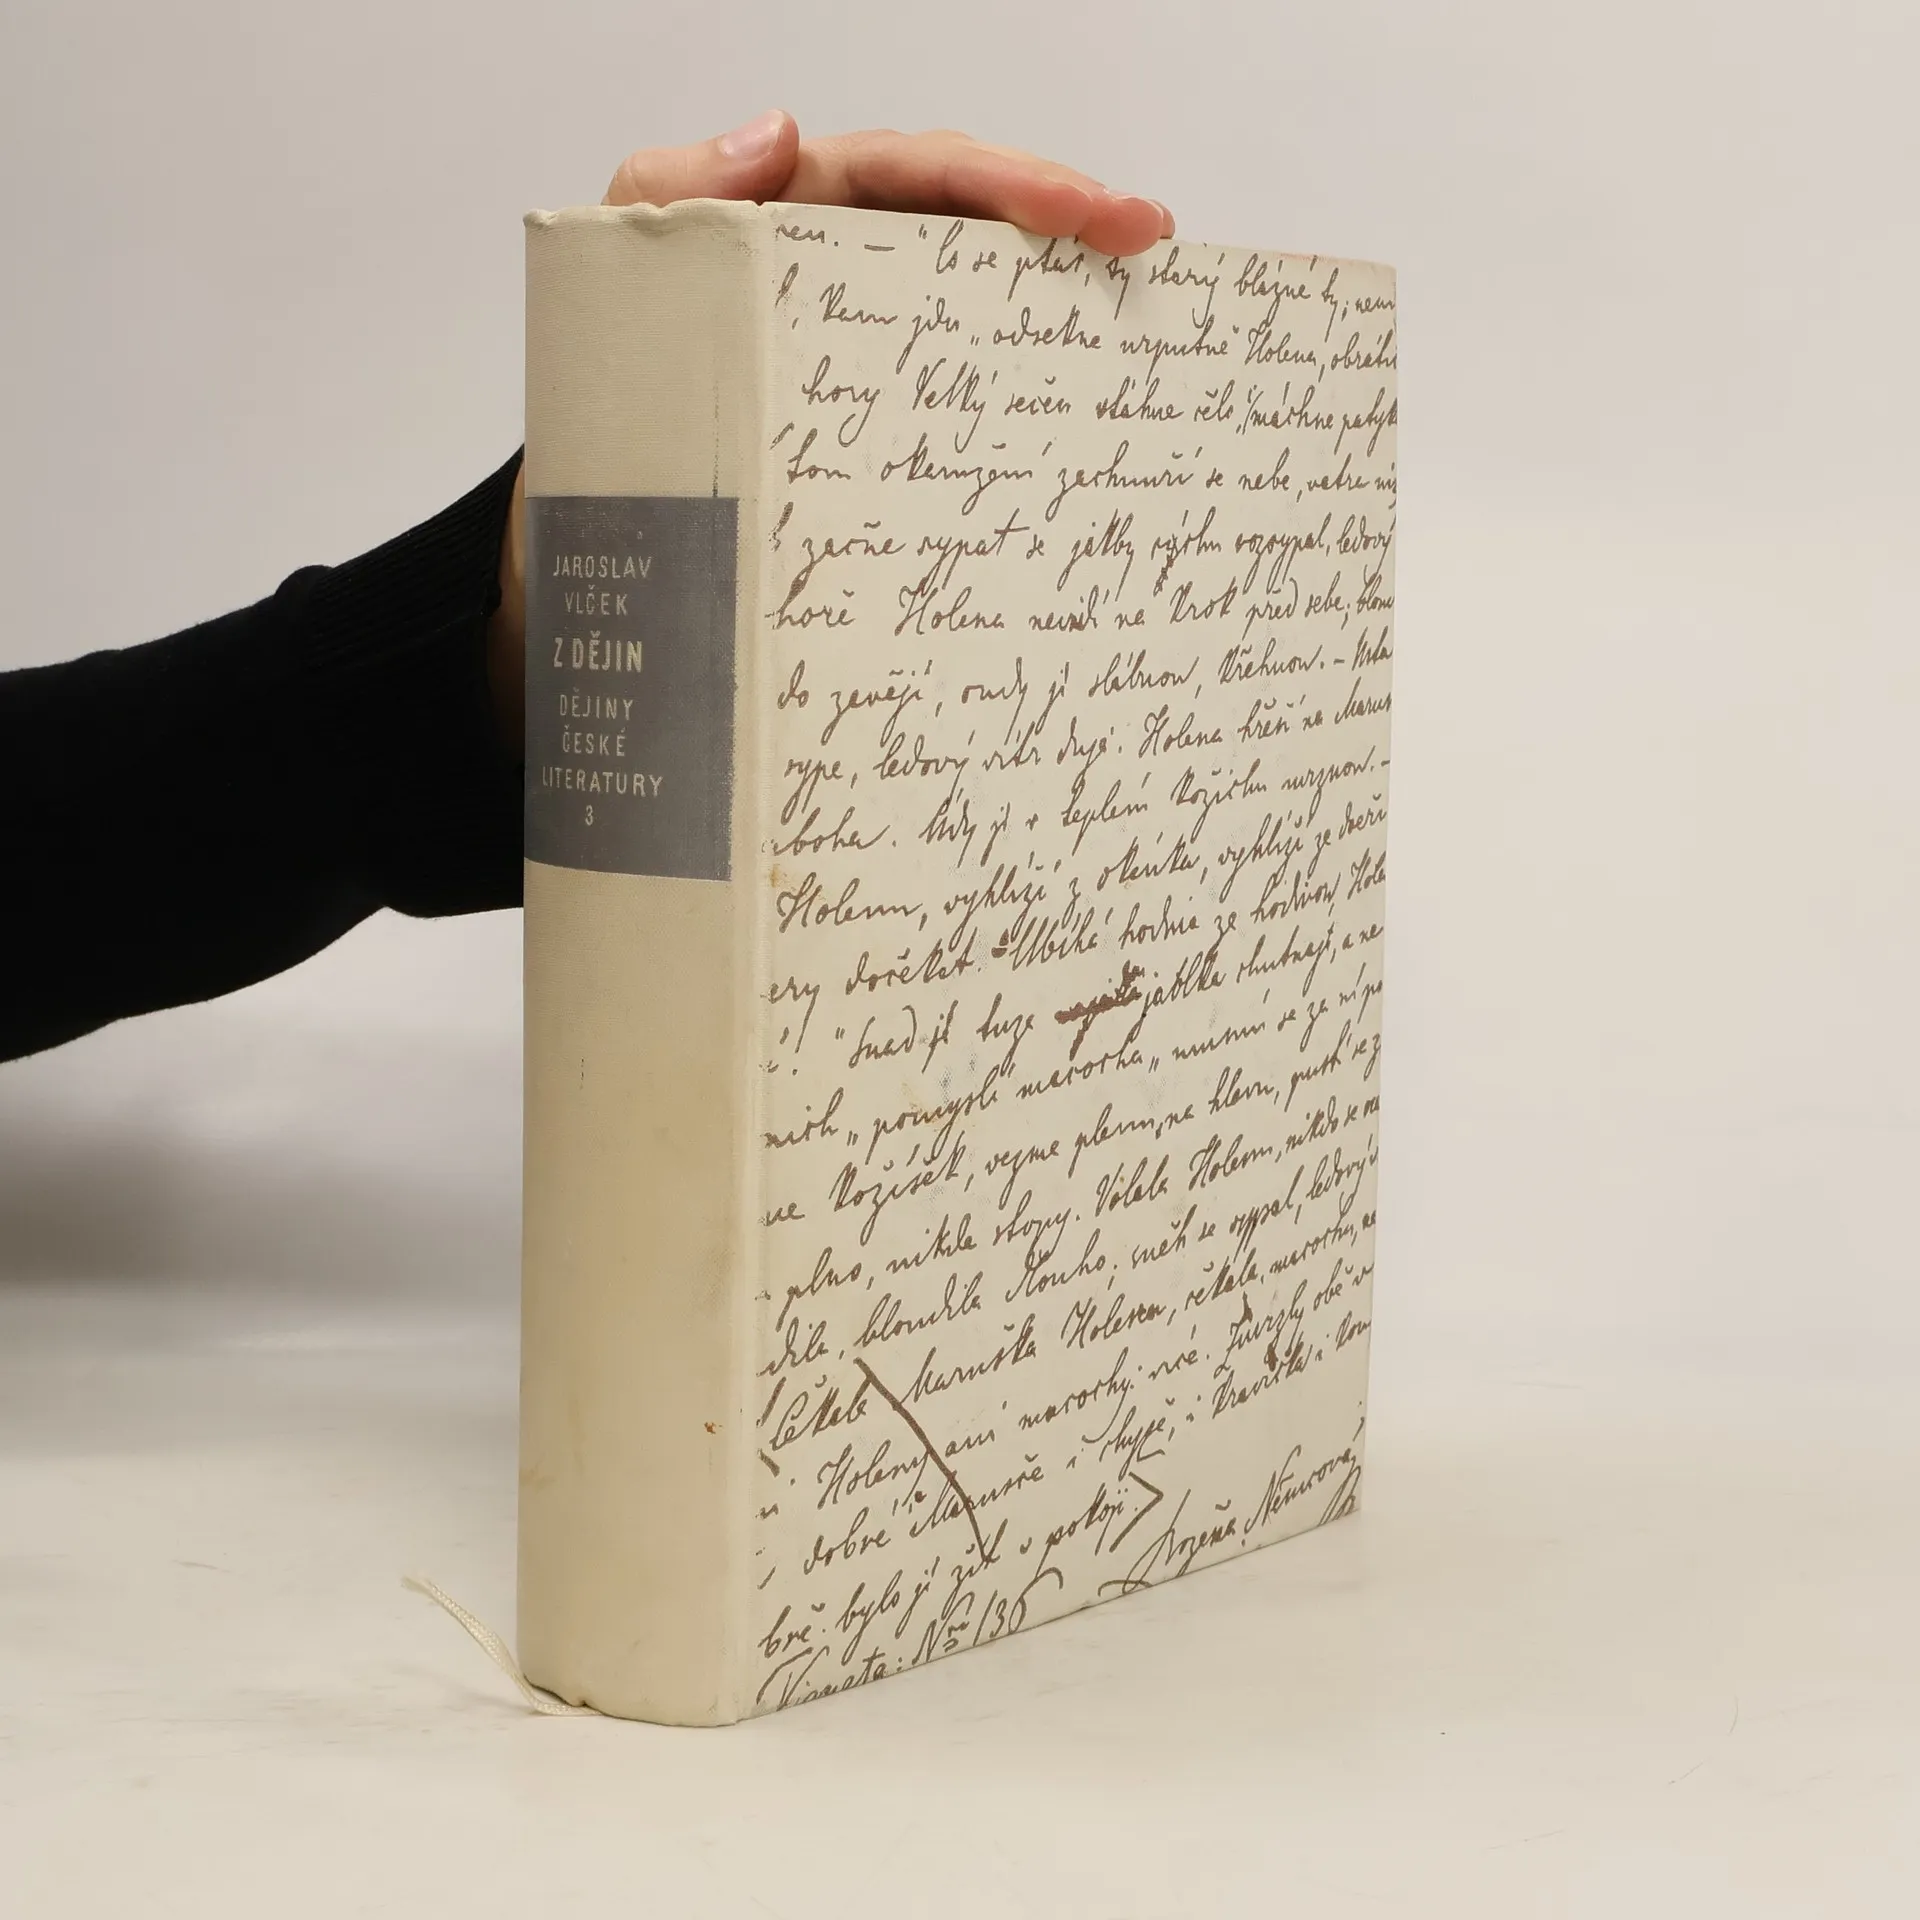 JAROSLAV
VLČEK
Z DĚJIN
DĚJINY
ČESKÉ
LITERATURY
3
— "Co se ptáš, ty starý blázne ty;
kam jdu „ odsekne urputně Holena,
hory Velký sečen stáhne čelo, máchne
tom okamžení zachmuří se nebe,
začne sypat se jakby rozsypal, ledový
hoře Holena nevidí na krok před sebe;
do zavějí, oudy jí slábnou, křehnou. —
sype, ledový vítr duje. Holena hřeší na
boha. Oudy jí v teplém kožichu mrznou. —
Holenu, vyhlíží z okénka, vyhlíží ze dveří
dočekat. Ubíhá hodina ze hodinou,
"Snad jí tuze jablka chutnají, a ne
nich „ pomyslí macocha „ musím se za ní
kožíšek, vezme plenu na hlavu, pustí se z
plno, nikde stopy. Volala Holenu, nikdo se
bloudila dlouho; sníh se sypal, ledový
Čekala Maruška Holenu, čekala macochu,
Holeny ani macochy více. Zmrzly obě v
dobré Marušce i chyše, i kravička i
bylo jí žít v pokoji.
Božena Němcová
Vigneta: Nro 136